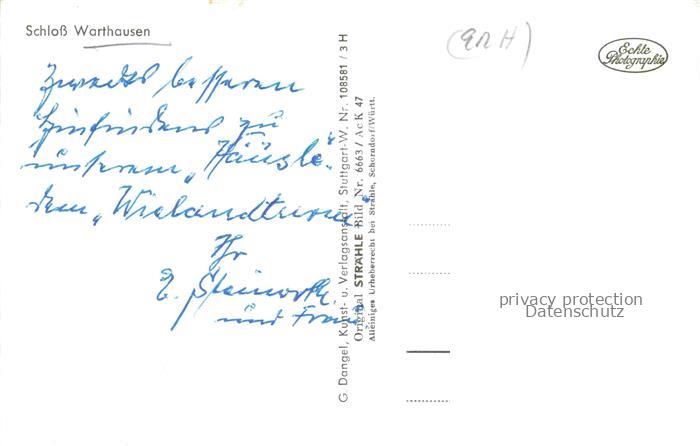 Schloß Warthausen
Zwecks besseren
Hinfindens zu
unserem „Häusle“
dem „Wielandturm“
Ihr
E. Steinorth
und Frau
G. Dangel, Kunst- u. Verlagsanstalt, Stuttgart-W. Nr. 108581 / 3 H
Original STRÄHLE Bild Nr. 6663 / Ac K 47
Alleiniges Urheberrecht bei Strähle, Schorndorf/Württ.
Echte
Photographie
privacy protection
Datenschutz